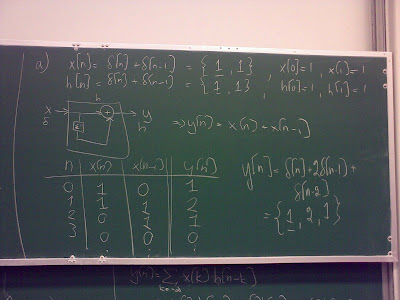 a) x[n] = δ[n] + δ[n-1] = {1, 1}, x[0]=1, x[1]=1
h[n] = δ[n] + δ[n-1] = {1, 1}, h[0]=1, h[1]=1
h
x + y
δ h
⇒ y[n] = x[n] + x[n-1]
n x[n] x[n-1] y[n]
0 1 0 1
1 1 1 2
2 0 1 1
3 0 0 0
y[n] = δ[n] + 2δ[n-1] +
δ[n-2]
= {1, 2, 1}
y[n] = Σ x[k] h[n-k]